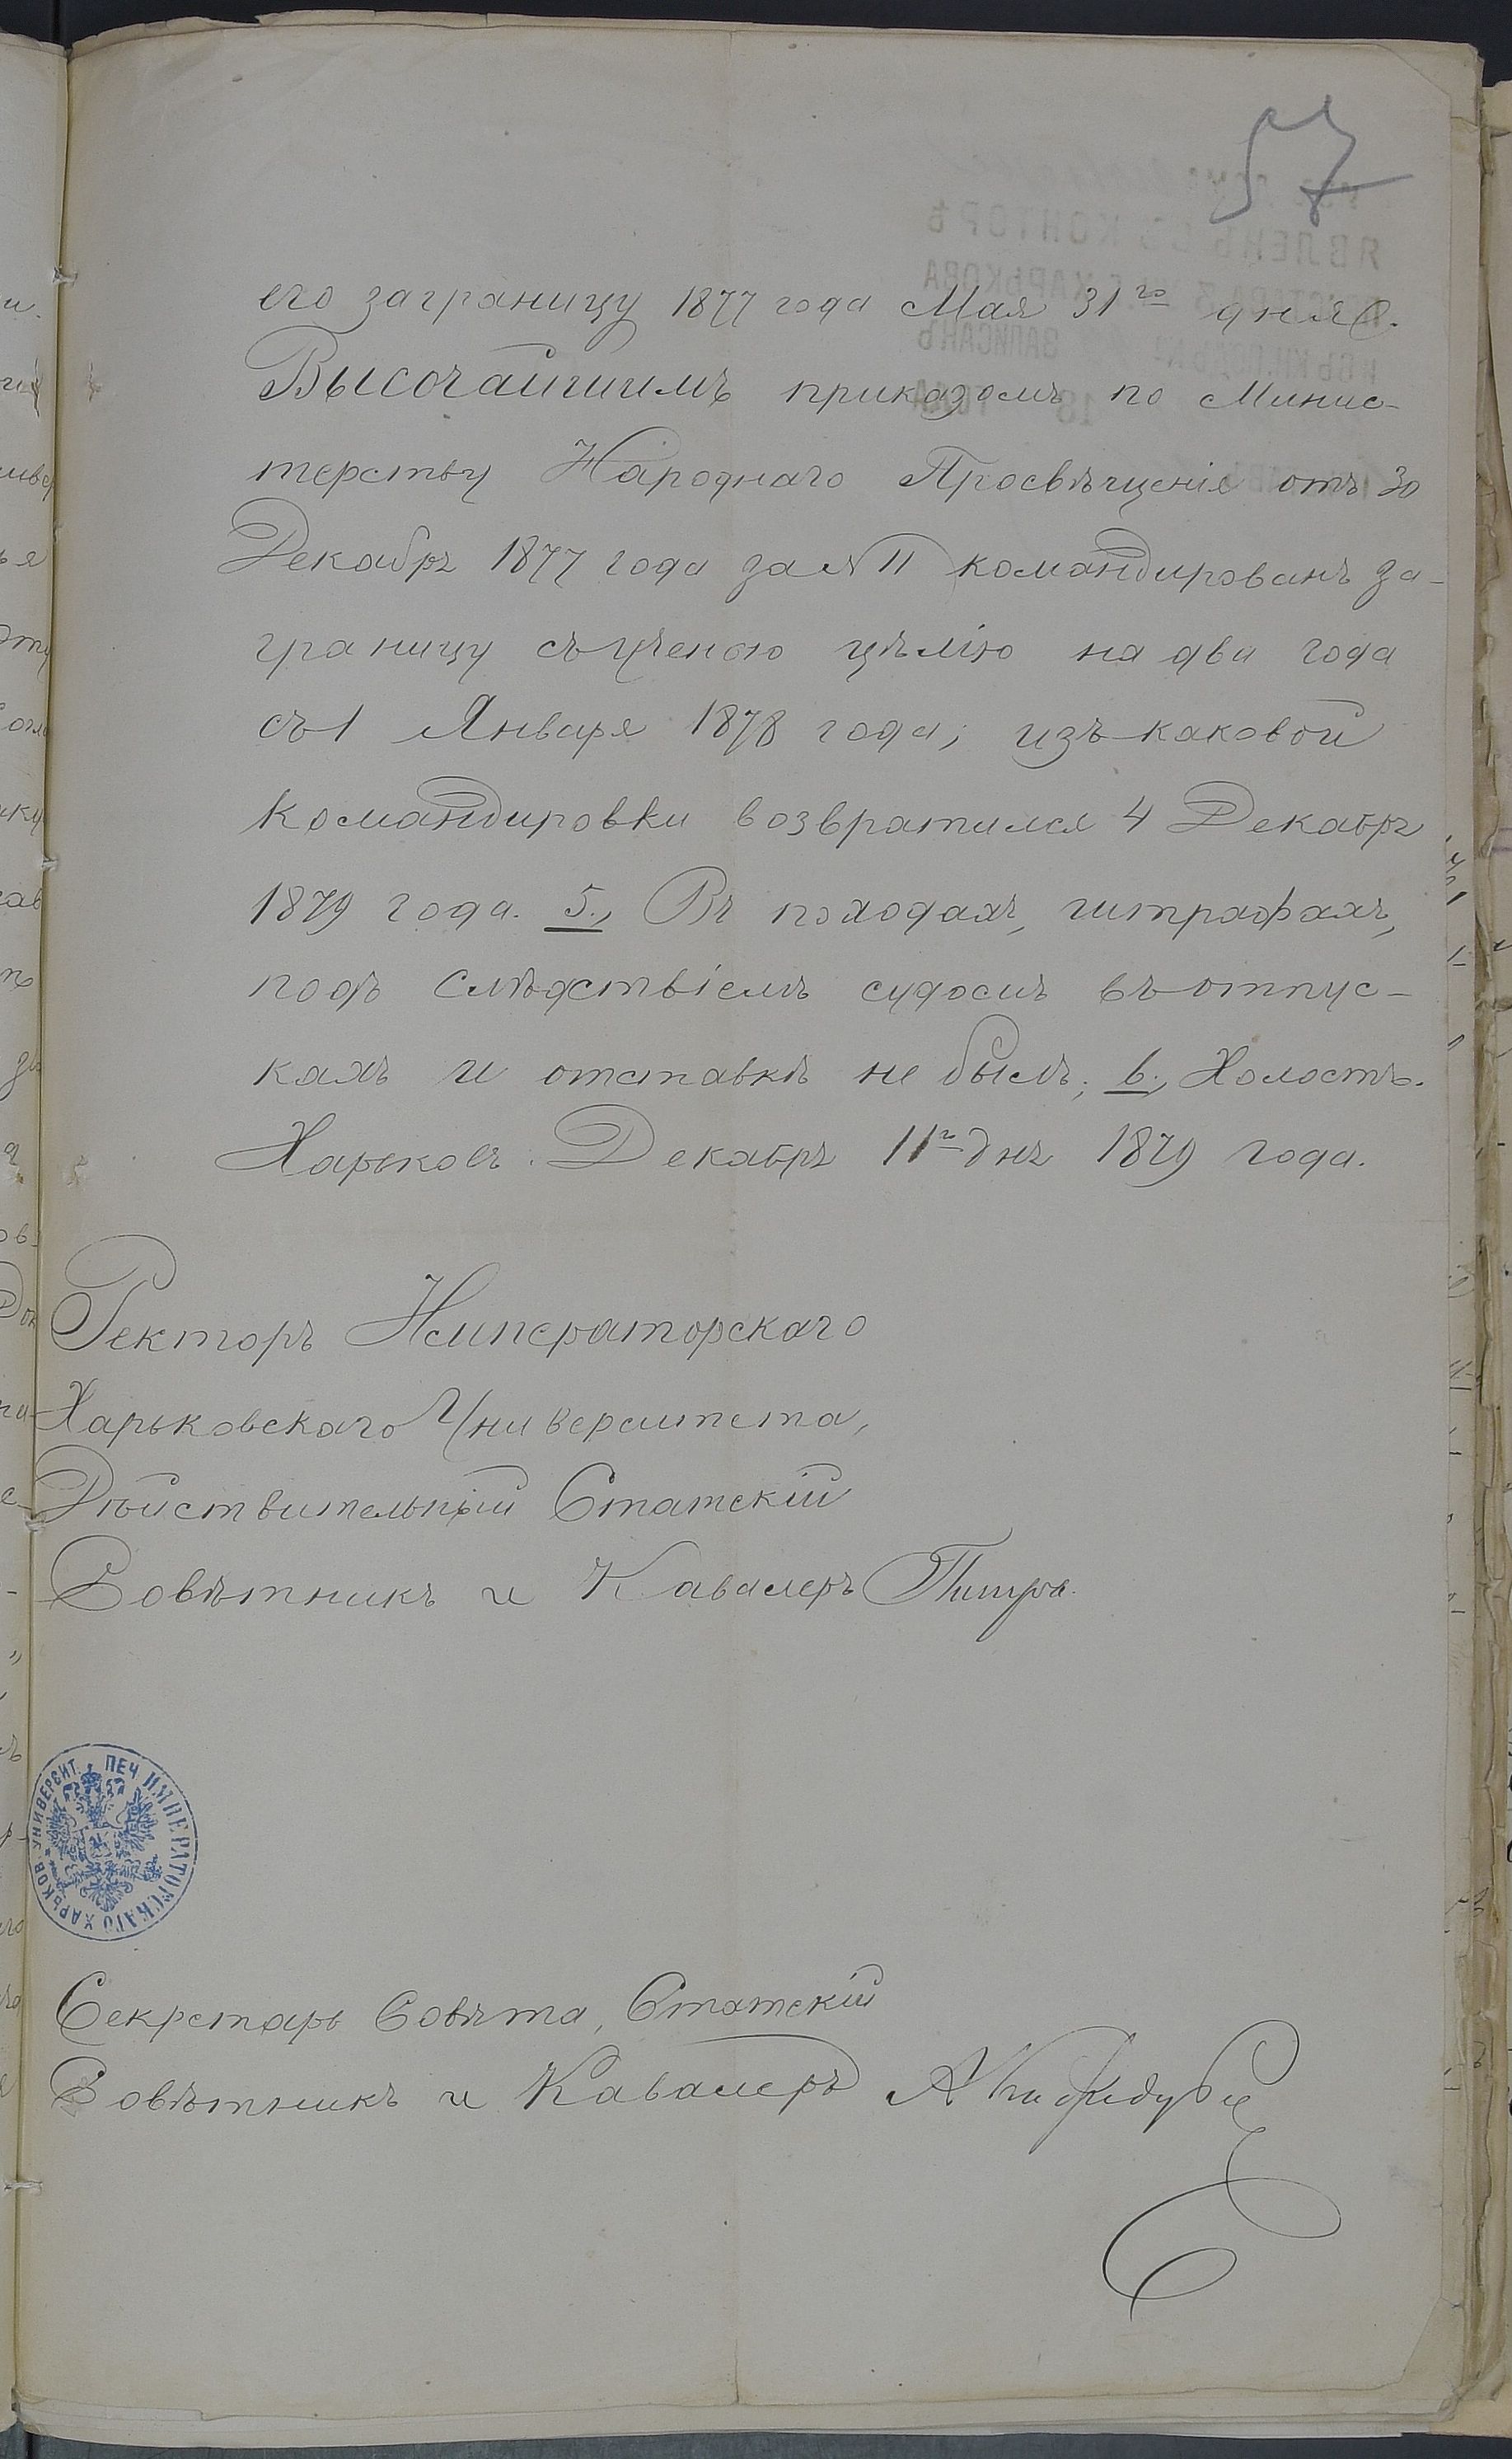 57
его заграницу 1877 года Мая 31го дня.
Высочайшимъ приказомъ по Минис-
терству Народнаго Просвѣщенія отъ 30
Декабря 1877 года за № 11 командированъ за-
границу съ ученою цѣлію на два года
съ 1 Января 1878 года; изъ каковой
командировки возвратился 4 Декабря
1879 года. 5., Въ походахъ, штрафахъ,
подъ слѣдствіемъ судомъ въ отпус-
кахъ и отставкѣ не былъ; 6., Холостъ.
Харьковъ. Декабря 11г дня 1879 года.
Ректоръ Императорскаго
Харьковскаго Университета,
Дѣйствительный Статскій
Совѣтникъ и Кавалеръ Питра.
ПЕЧ ИМПЕРАТОРСКАГО ХАРЬКОВ. УНИВЕРСИТ.
Секретарь Совѣта, Статскій
Совѣтникъ и Кавалеръ